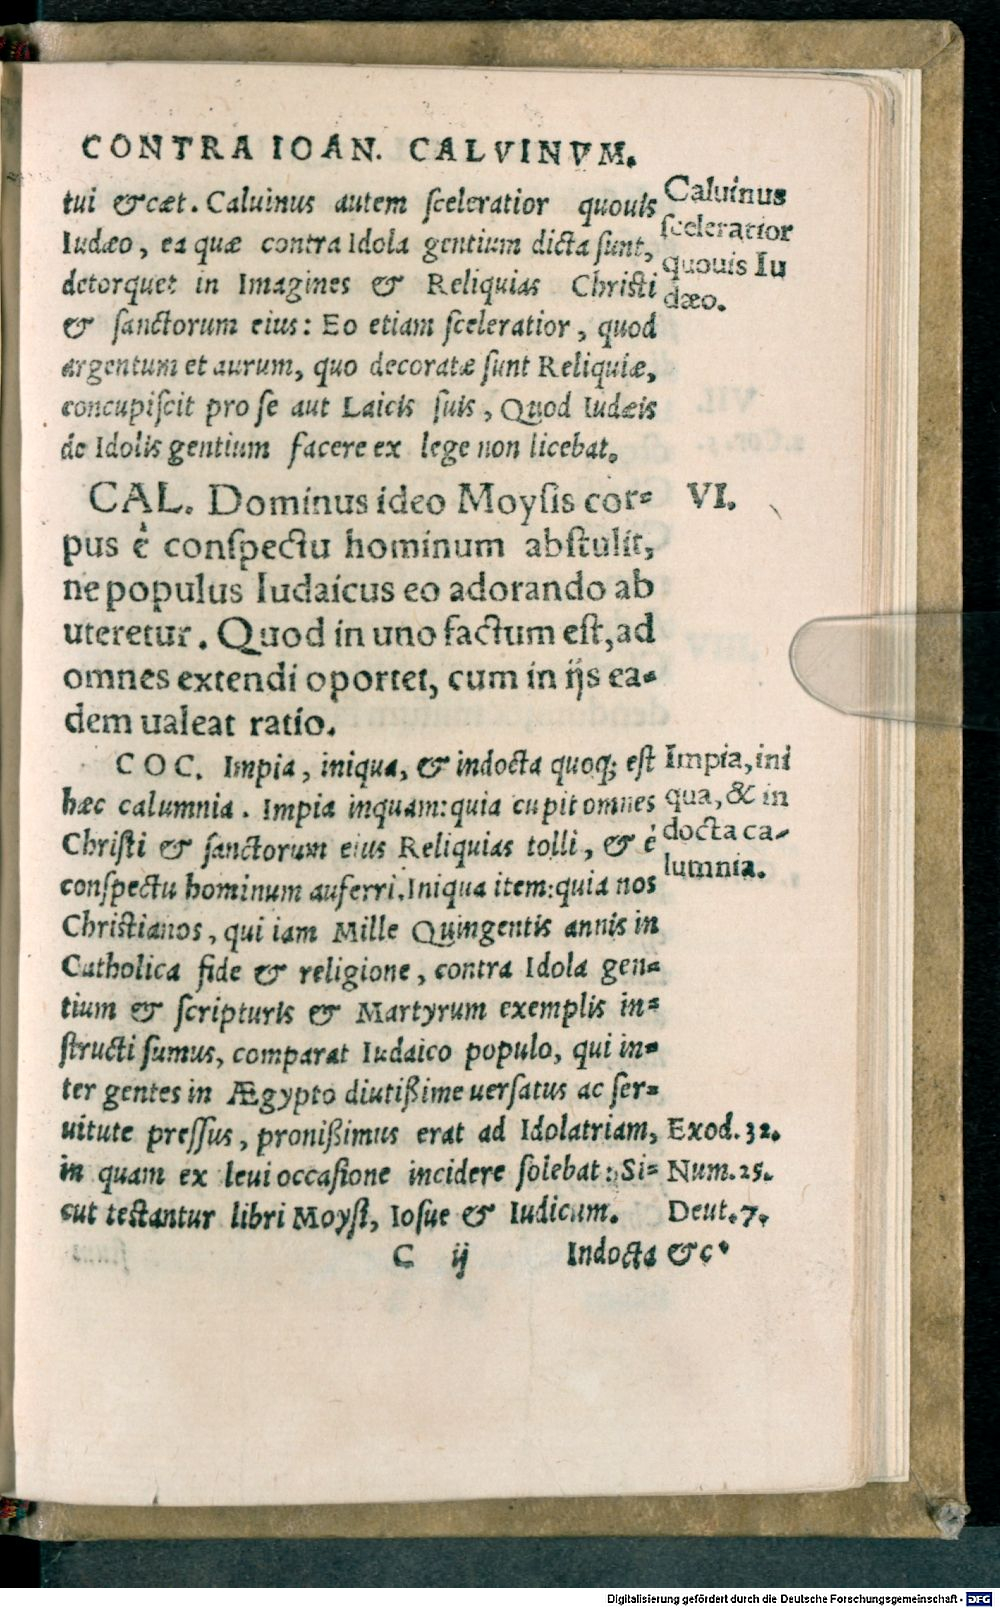 CONTRA IOAN. CALVINVM.
tui & cæt. Caluinus autem ſceleratior quouis
Iudæo, ea quæ contra Idola gentium dicta ſunt,
detorquet in Imagines & Reliquias Chriſti
& ſanctorum eius: Eo etiam ſceleratior, quod
argentum et aurum, quo decoratæ ſunt Reliquiæ,
concupiſcit pro ſe aut Laicis ſuis, Quod Iudæis
de Idolis gentium facere ex lege non licebat.
Caluinus
ſceleratior
quouis Iu
dæo.
CAL. Dominus ideo Moyſis cor=
pus è conſpectu hominum abſtulit,
ne populus Iudaicus eo adorando ab
uteretur. Quod in uno factum eſt, ad
omnes extendi oportet, cum in ijs ea=
dem ualeat ratio.
VI.
COC. Impia, iniqua, & indocta quoq; eſt
hæc calumnia. Impia inquam: quia cupit omnes
Chriſti & ſanctorum eius Reliquias tolli, & è
conſpectu hominum auferri. Iniqua item: quia nos
Chriſtianos, qui iam Mille Quingentis annis in
Catholica fide & religione, contra Idola gen=
tium & ſcripturis & Martyrum exemplis in=
ſtructi ſumus, comparat Iudaico populo, qui in=
ter gentes in Ægypto diutißime uerſatus ac ſer=
uitute preſſus, pronißimus erat ad Idolatriam,
in quam ex leui occaſione incidere ſolebat: Si=
cut teſtantur libri Moyſi, Ioſue & Iudicum.
Impia, ini
qua, & in
docta ca=
lumnia.
Exod. 32.
Num. 25.
Deut. 7.
C ij Indocta &c.
Digitalisierung gefördert durch die Deutsche Forschungsgemeinschaft - DFG